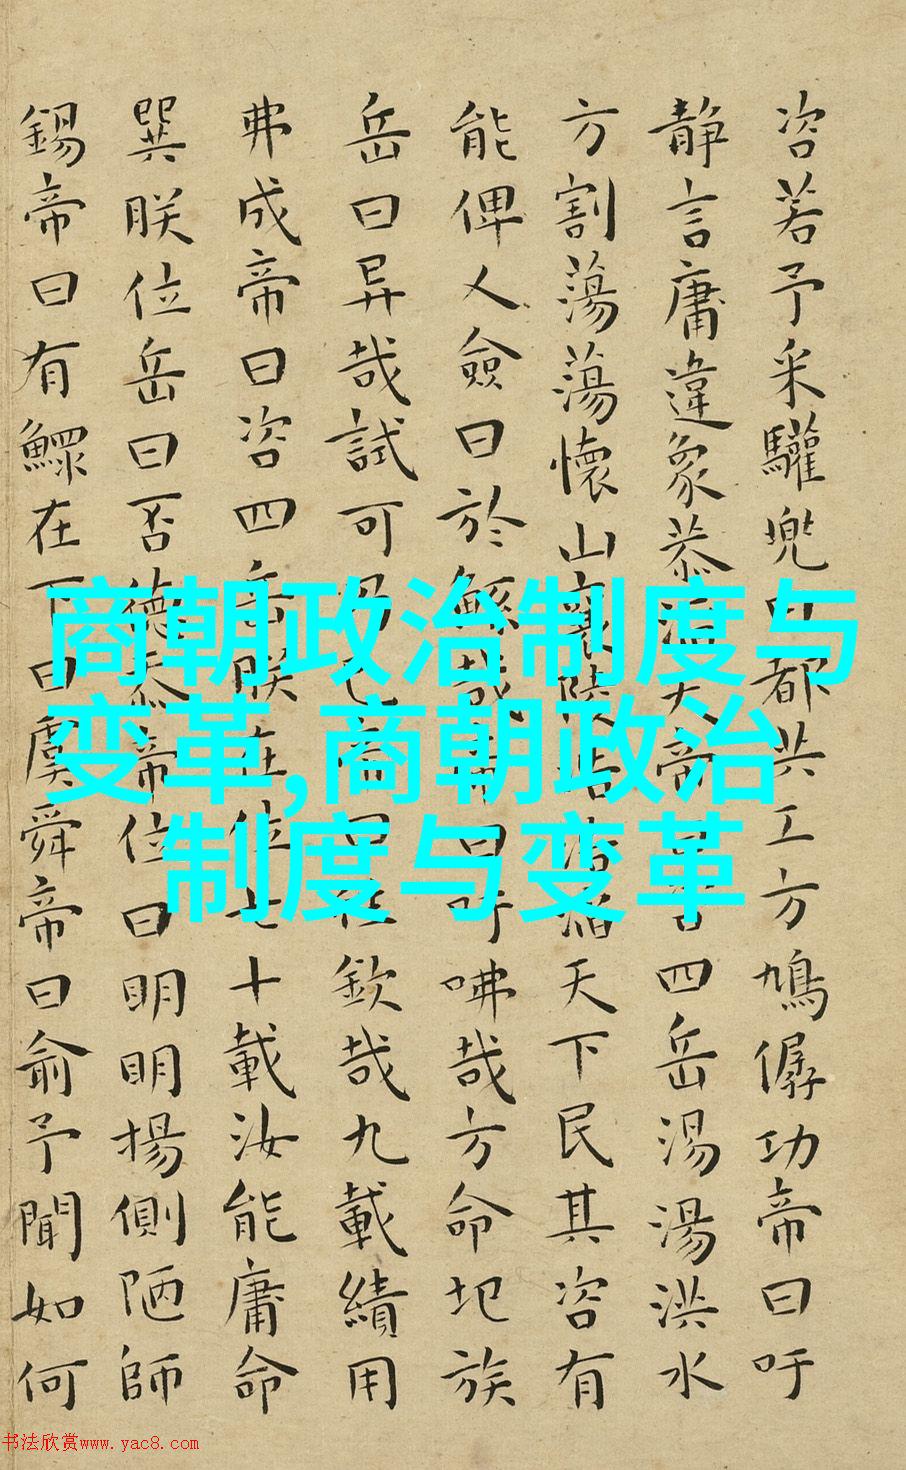 咨若予采驩兜曰都共工方鳩僝功帝曰吁
靜言庸違象恭滔天帝曰咨四岳湯湯洪水
方割蕩蕩懷山襄陵浩浩滔天下民其咨有
能俾乂僉曰於鯀哉帝曰吁咈哉方命圯族
岳曰异哉試可乃已帝曰往欽哉九載績用
弗成帝曰咨四岳朕在位七十載汝能庸命
巽朕位岳曰否德忝帝位曰明明揚側陋師
錫帝曰有鰥在下曰虞舜帝曰俞予聞如何
商朝政治制度与
变革,商朝政治
制度与变革
书法欣赏www.yac8.com